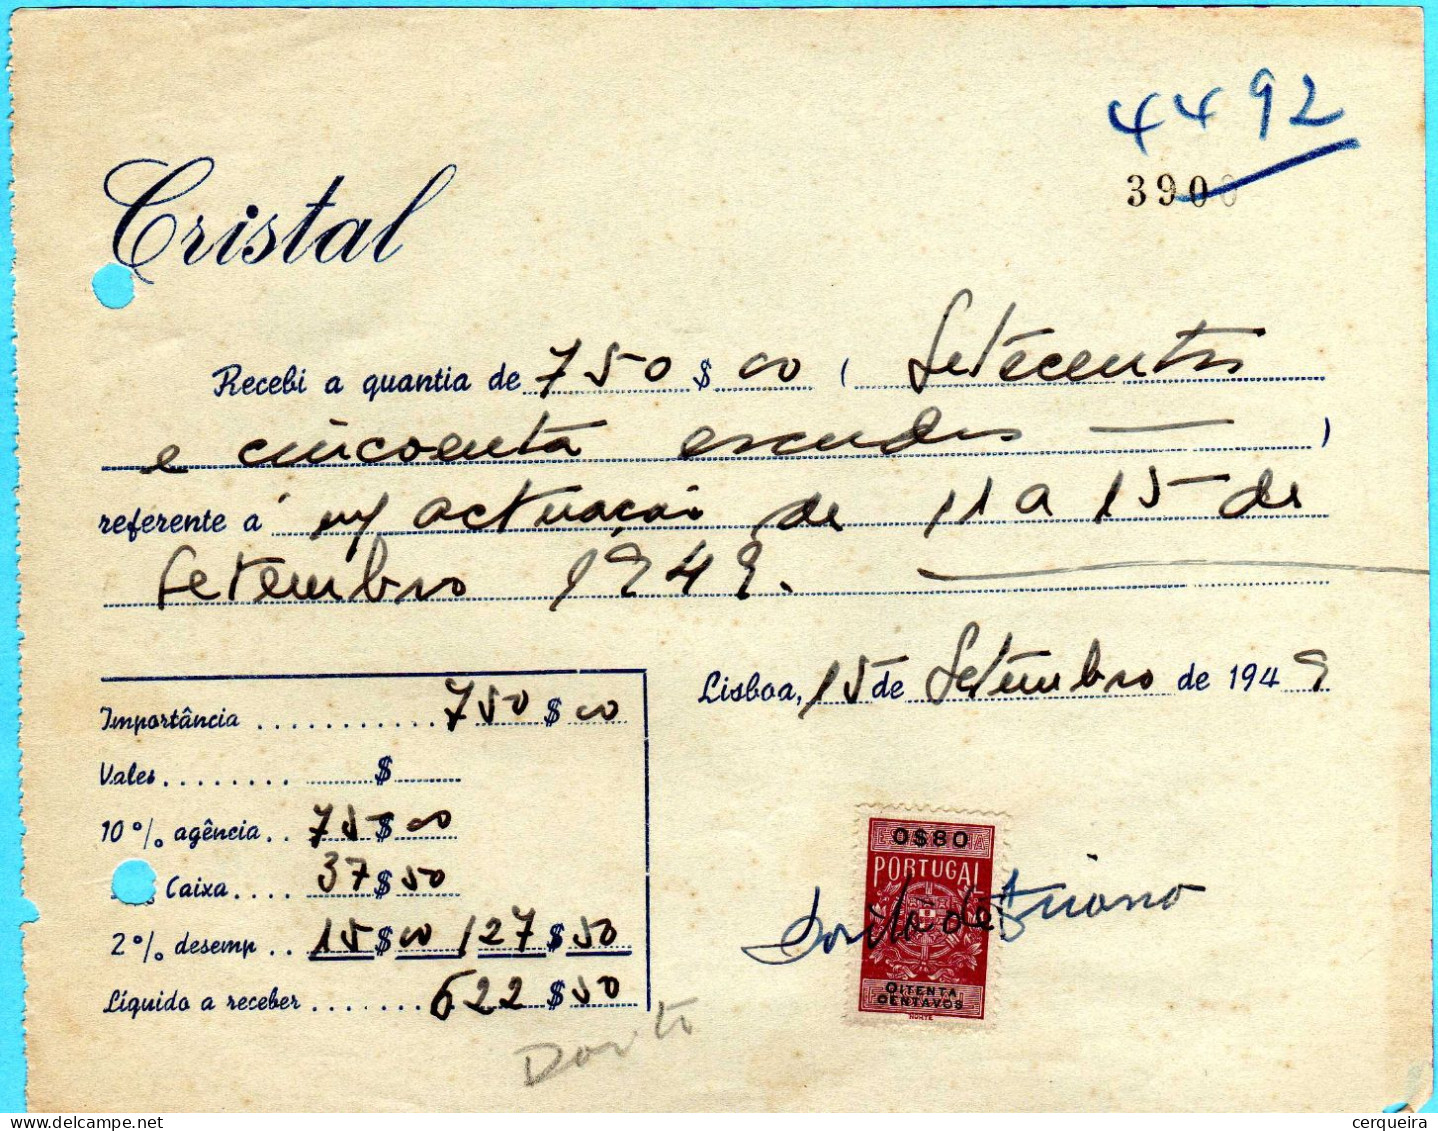 4492
3900
Cristal
Recebi a quantia de 750 $ 00 ( Setecentos
e cincoenta escudos — )
referente a m/ actuação de 11 a 15 de
Setembro 1949.
Lisboa, 15 de Setembro de 1949
Importância ............ 750 $ 00
Vales ........ $
10 % agência .. 75 $ 00
Caixa .... 37 $ 50
2 % desemp .. 15 $ 00 / 127 $ 50
Líquido a receber ....... 622 $ 50
0$80
PORTUGAL
OITENTA
CENTAVOS
NORTE
cerqueira